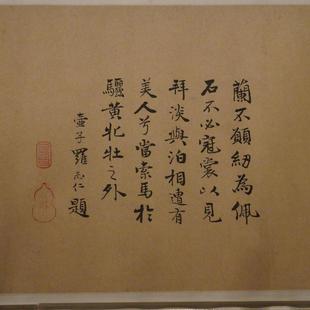 蘭不願紉為佩
石不必冠裳以見
拜淡與泊相遭有
美人兮當索馬於
驪黃牝牡之外
壺子羅志仁題